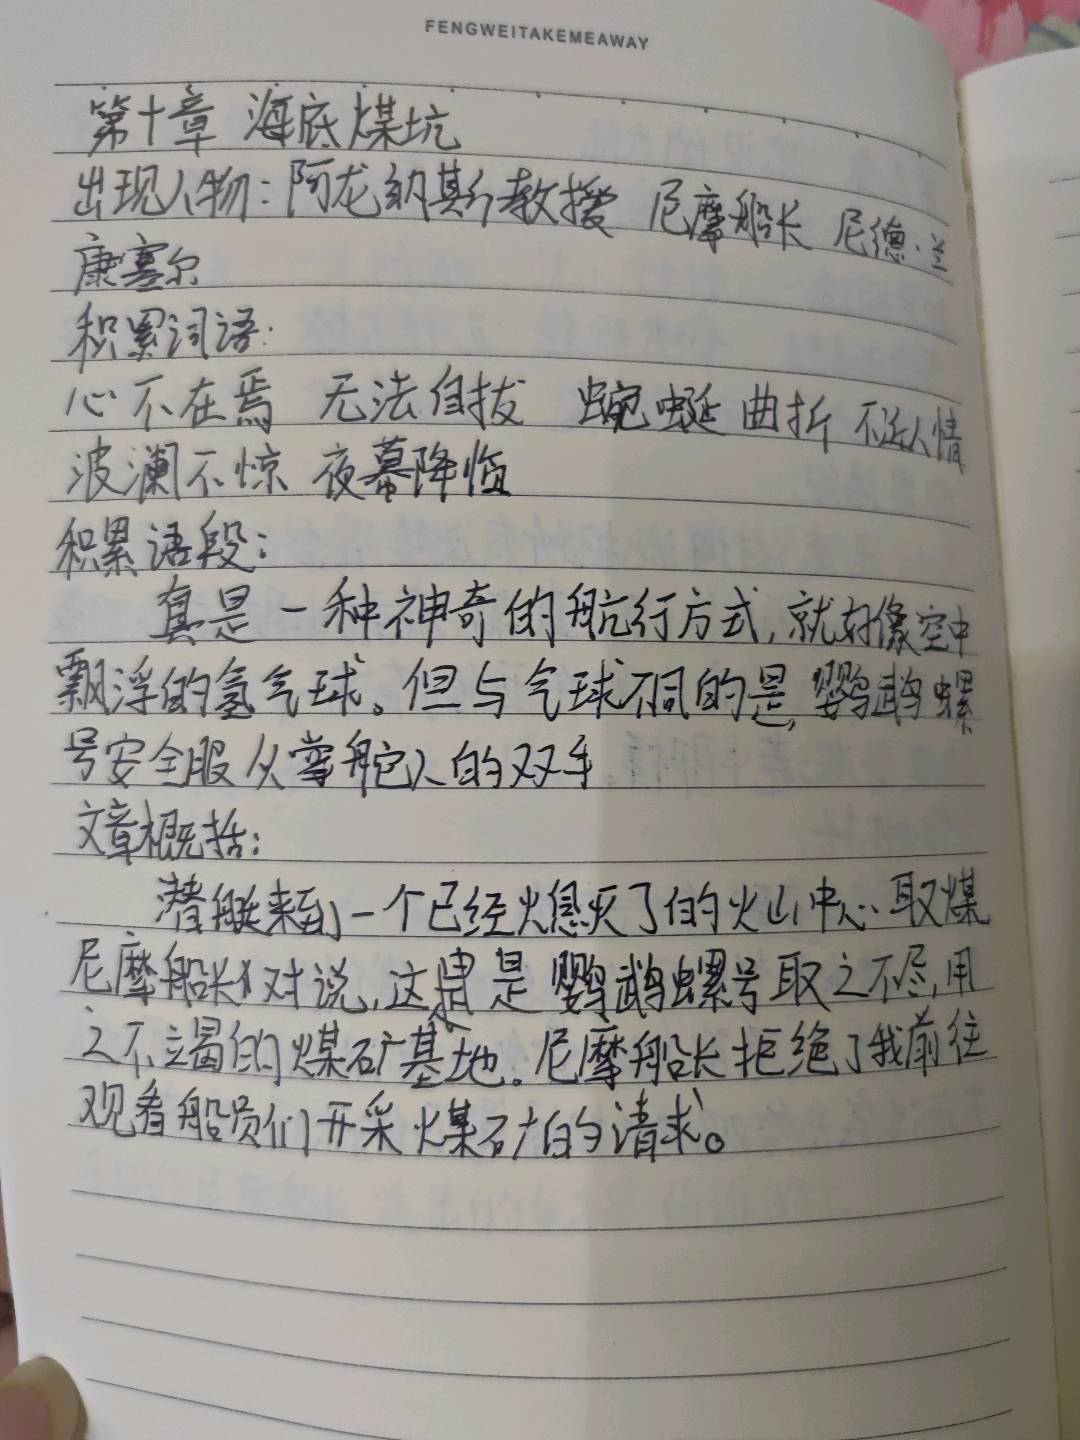 FENGWEITAKEMEAWAY
第十章 海底煤坑
出现人物：阿龙纳斯教授 尼摩船长 尼德·兰
康塞尔
积累词语：
心不在焉 无法自拔 蜿蜒曲折 不近人情
波澜不惊 夜幕降临
积累语段：
真是一种神奇的航行方式，就好像空中
飘浮的氢气球。但与气球不同的是，鹦鹉螺
号安全服从掌舵人的双手
文章概括：
潜艇来到一个已经熄灭了的火山中心取煤
尼摩船长对说，这里是鹦鹉螺号取之不尽，用
之不竭的煤矿基地。尼摩船长拒绝了我前往
观看船员们开采煤矿的请求。